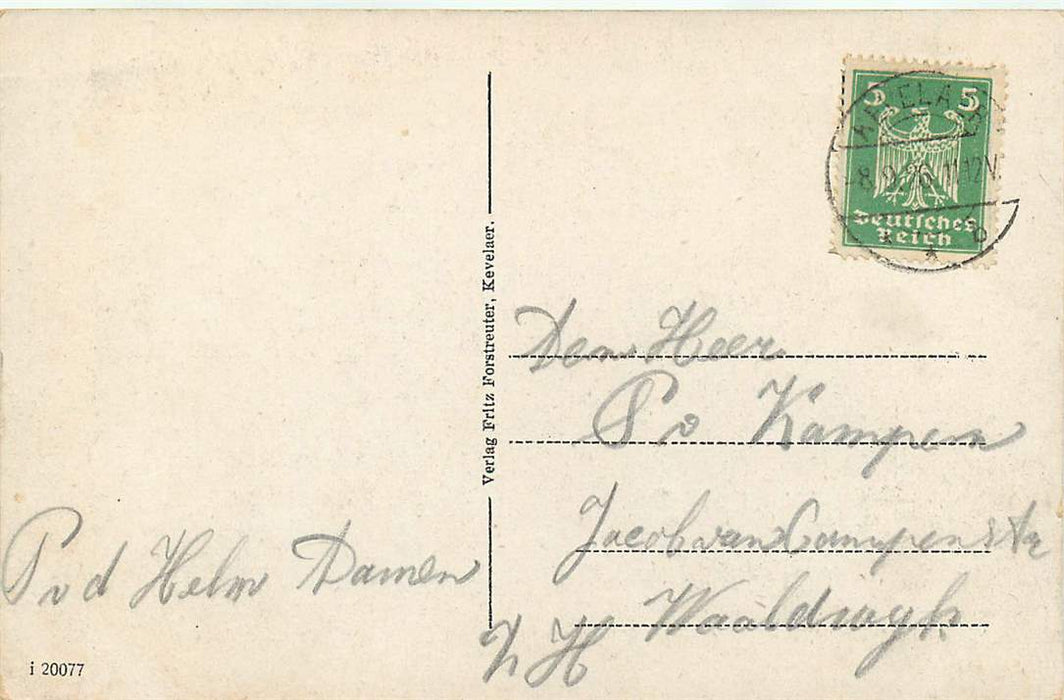 5 5
KEVELAER
-8.9.26. 11-12V.
b
Deutsches
Reich
Verlag Fritz Forstreuter, Kevelaer.
Den Heer
P v Kampen
Jacob van Campenstr
Waaldwyk
Z H
P v d Helm Damen
i 20077